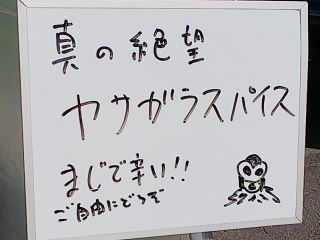 真の絶望
ヤサガラスパイス
まじで辛い!!
ご自由にどうぞ